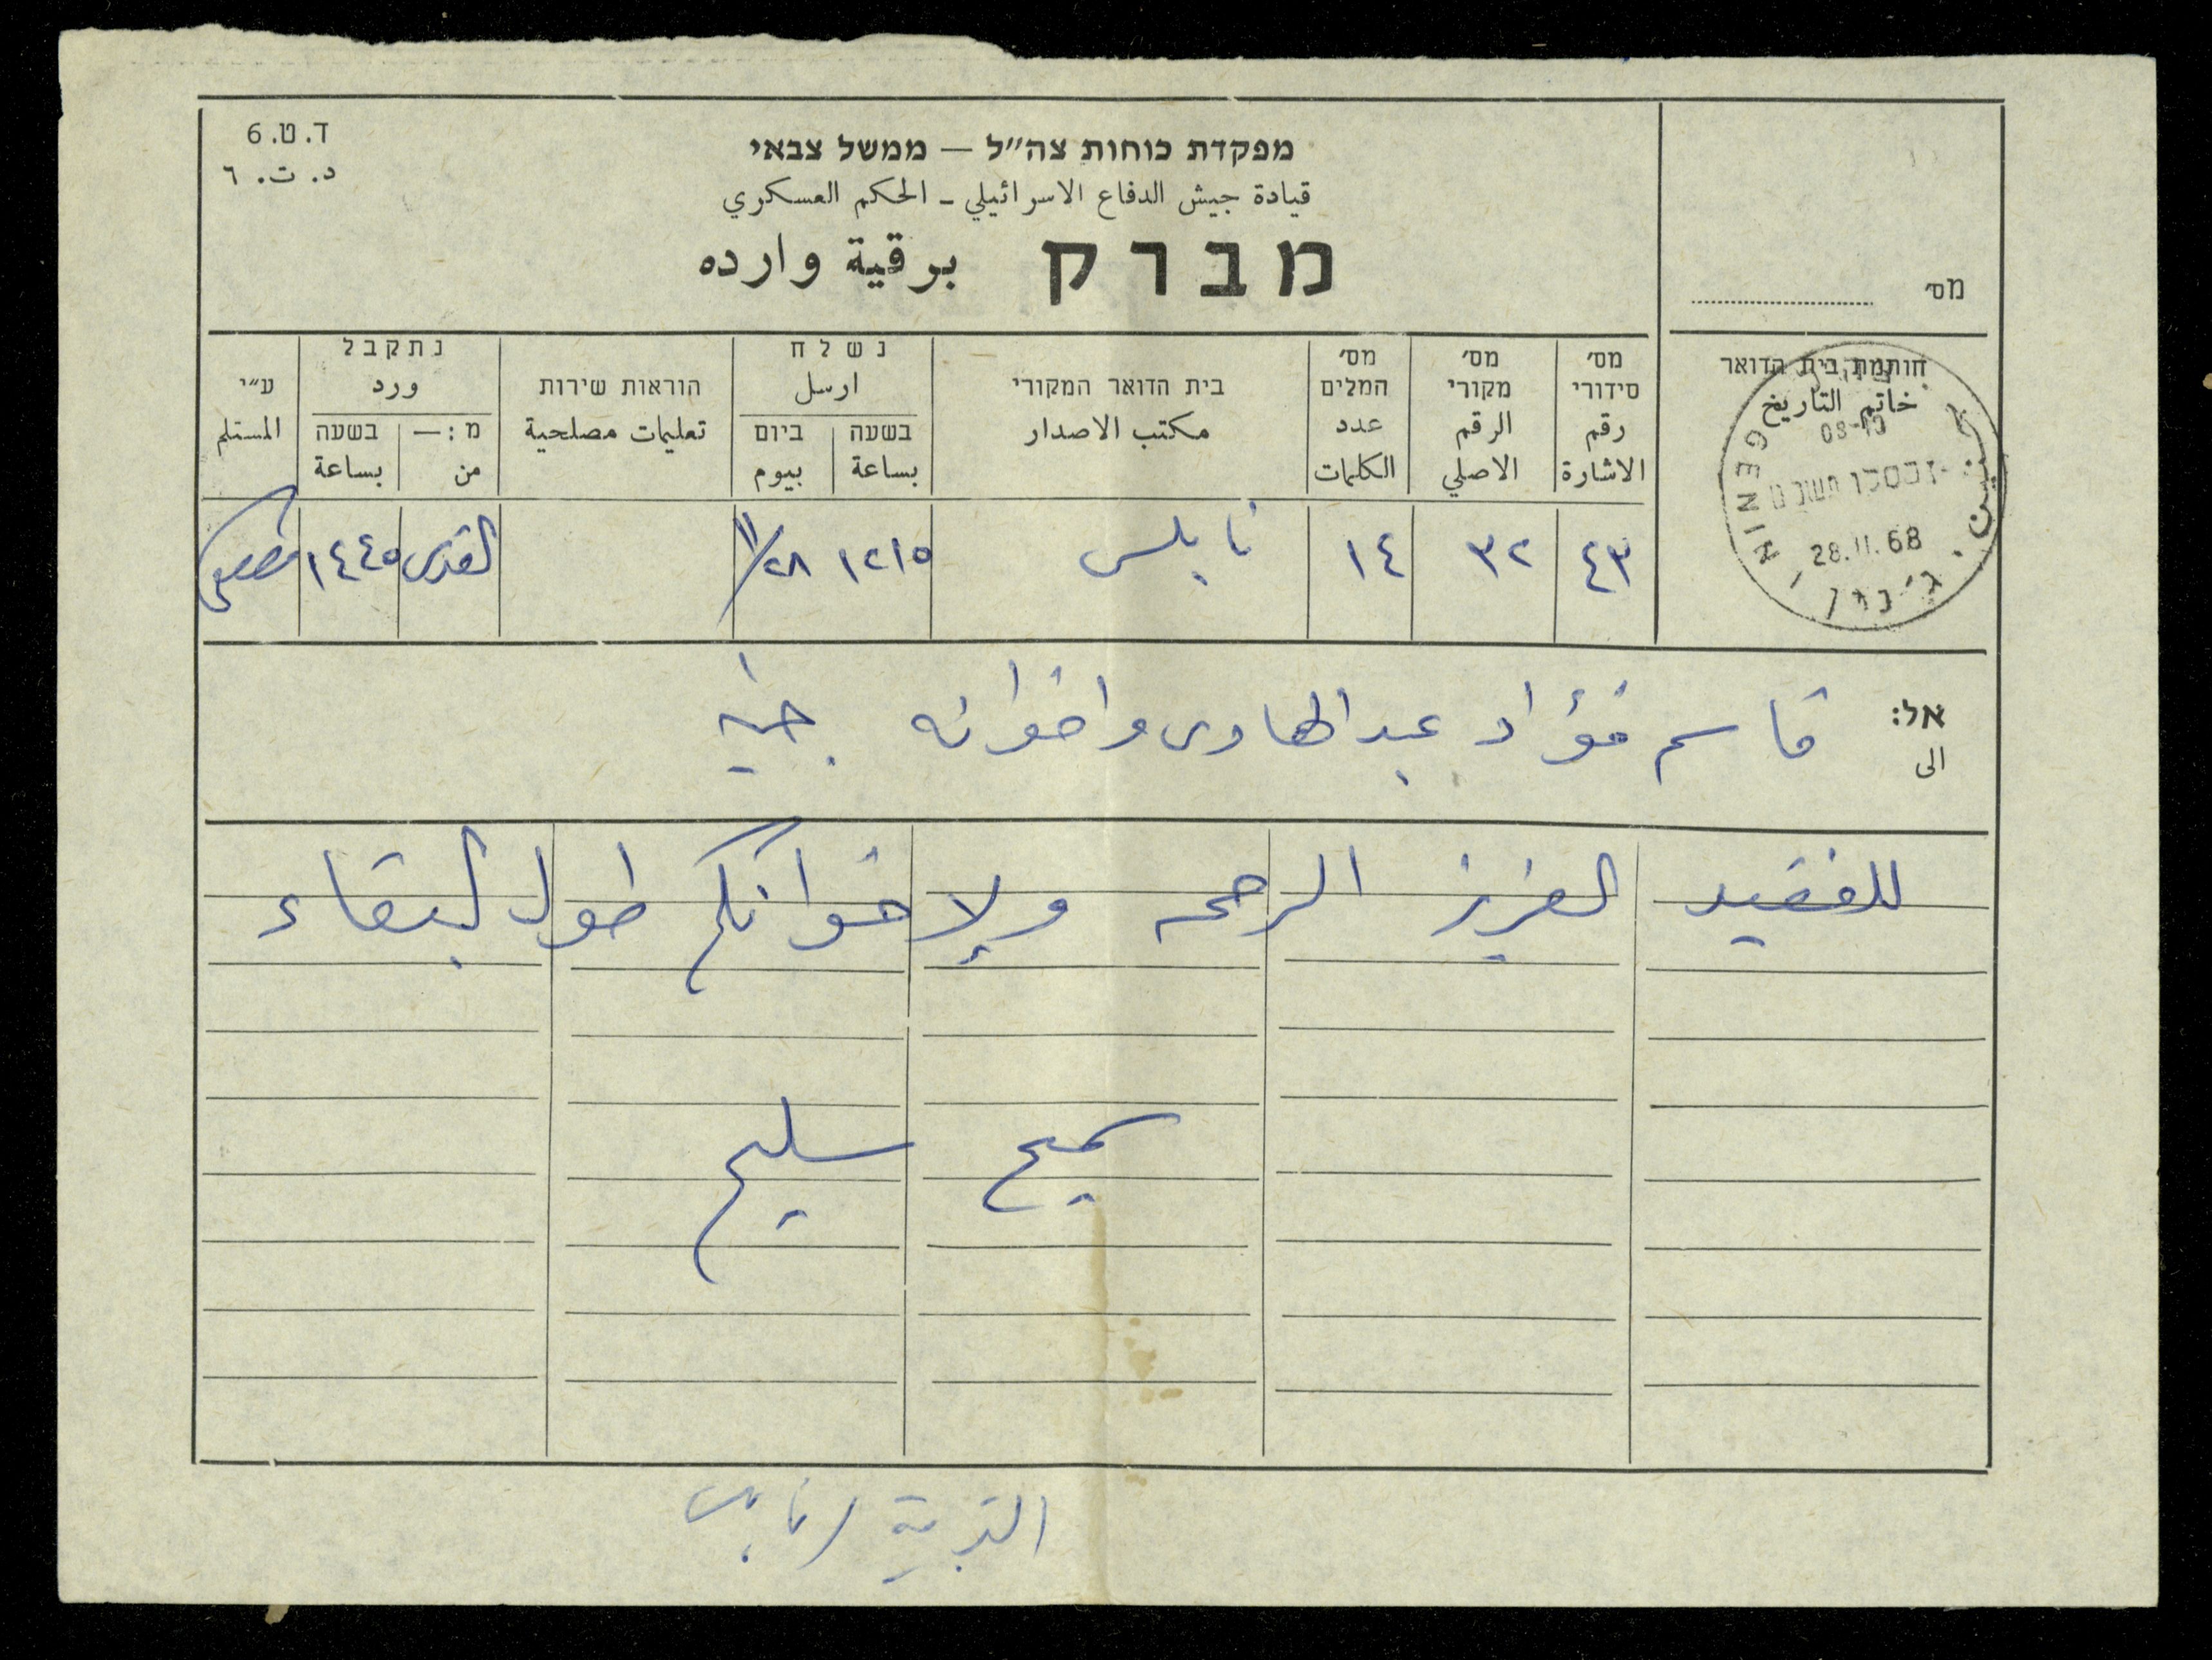 ד.ט.6
د. ت. ٦
מפקדת כוחות צה״ל — ממשל צבאי
قيادة جيش الدفاع الاسرائيلي - الحكم العسكري
מברק برقية وارده
מס׳
חותמת בית הדואר
خاتم التاريخ
GENIN
جنين
28.11.68
מס׳ סידורי
رقم الاشارة
מס׳ מקורי
الرقم الاصلي
מס׳ המלים
عدد الكلمات
בית הדואר המקורי
مكتب الاصدار
נשלח
ارسل
בשעה
بساعة
ביום
بيوم
הוראות שירות
تعليمات مصلحية
נתקבל
ورد
מ: —
من
בשעה
بساعة
ע״י
المستلم
٤٣ ٣٢ ١٤ نابلس ١٢١٥ ٢٨/١١ القدس ١٤٤٥
אל:
الى
قاسم فؤاد عبد الهادى واخوانه جنين
للفقيد العزيز الرحمه ولإخوانكم طول البقاء
سميح سليح
التربية / نابلس